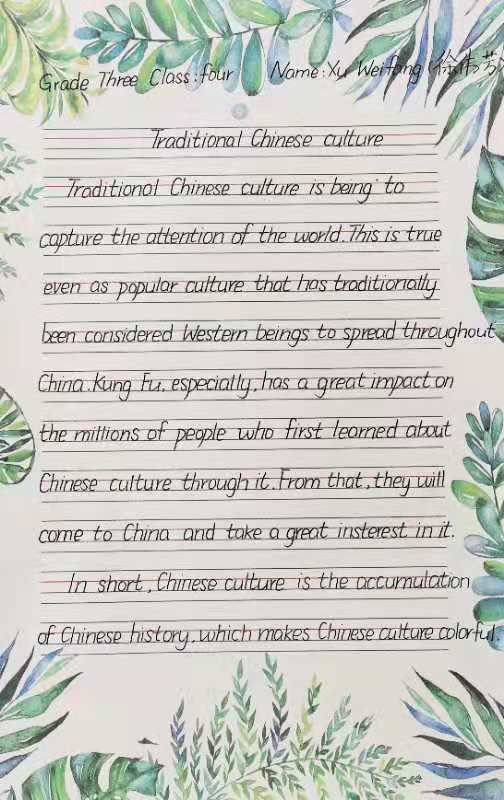 Grade Three Class:four Name:Xu Weifang(徐伟芳)
Traditional Chinese culture
Traditional Chinese culture is being to
capture the attention of the world.This is true
even as popular culture that has traditionally
been considered Western beings to spread throughout
China.Kung Fu, especially,has a great impact on
the millions of people who first learned about
Chinese culture through it.From that,they will
come to China and take a great insterest in it.
In short,Chinese culture is the accumulation
of Chinese history,which makes Chinese culture colorful.